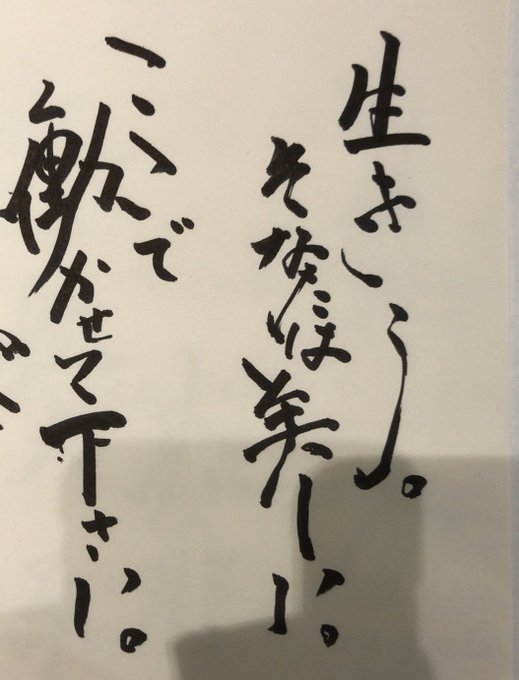 生きろ。
そなたは美しい。
ここで
働かせて下さい。